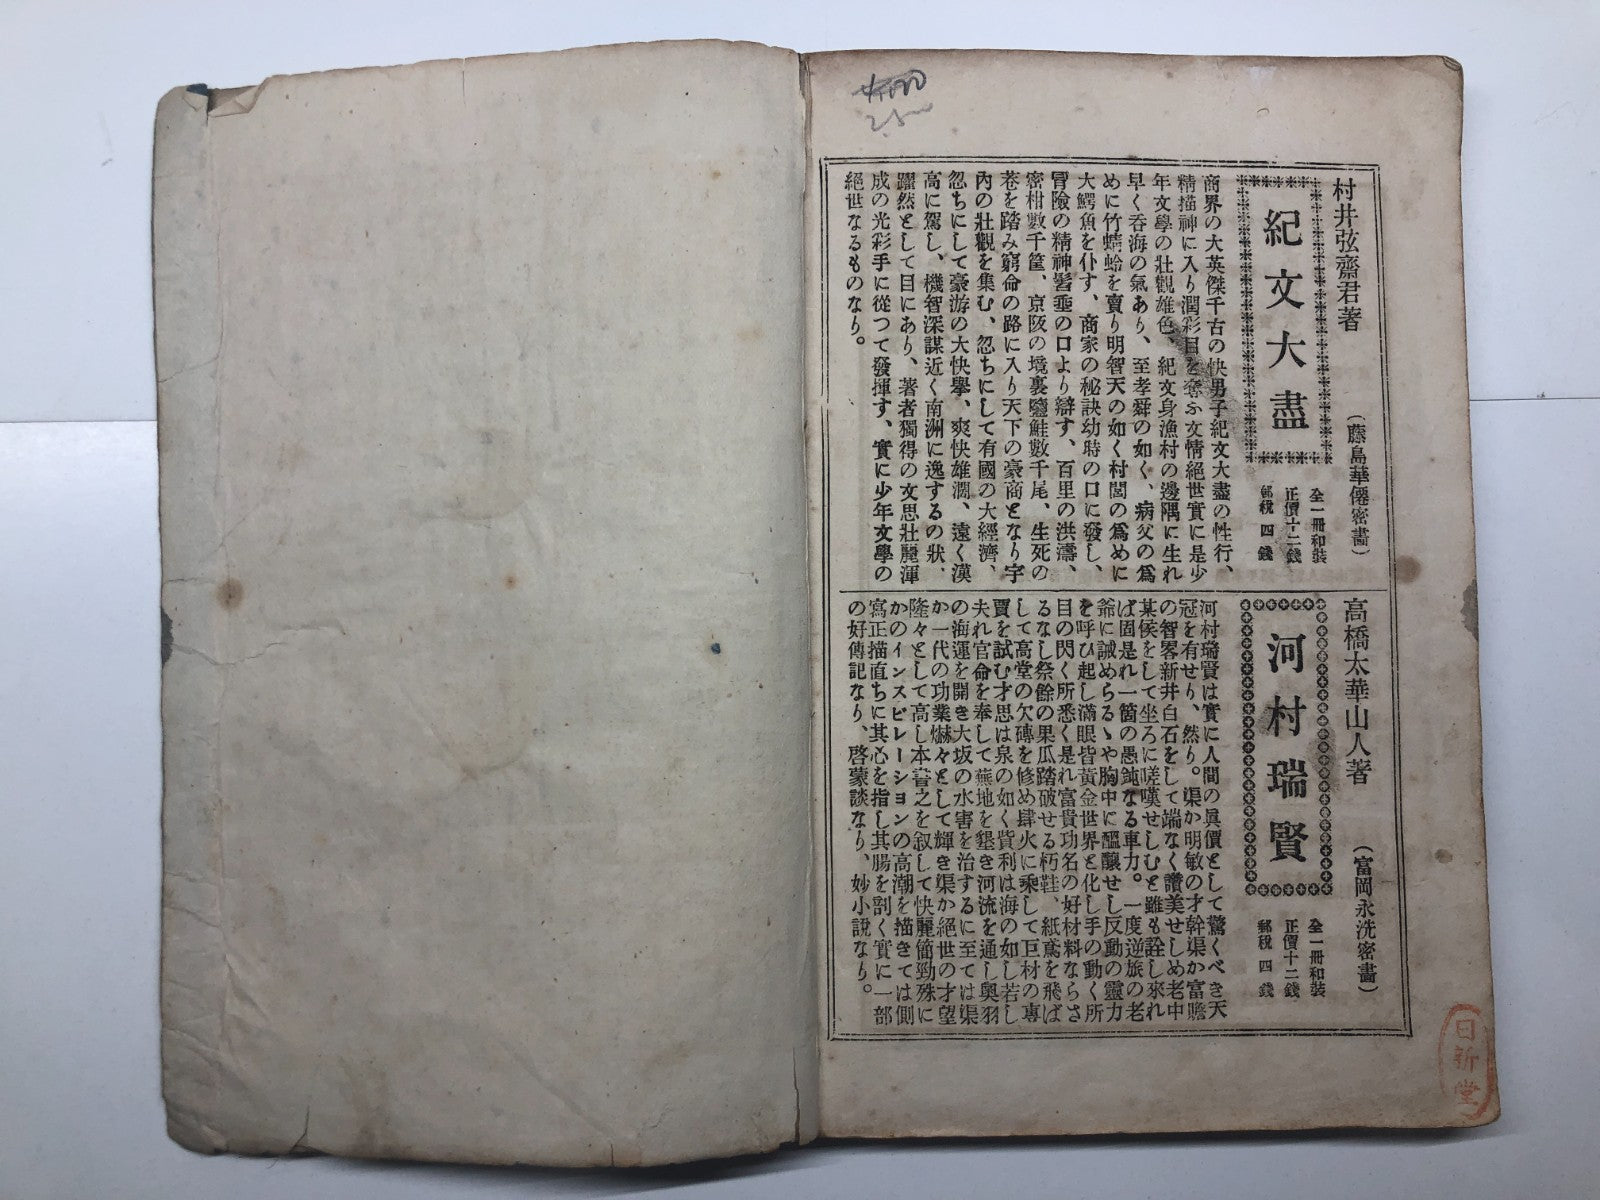 村井弦齋君著
（藤島華僊密畵）
紀文大盡
全一冊和裝
正價十二錢
郵稅四錢
商界の大英傑千古の快男子紀文大盡の性行、
精描神に入り潤彩目を奪ふ文情絕世實に是少
年文學の壯觀雄色、紀文身漁村の邊隅に生れ
早く呑海の氣あり、至孝舜の如く、病父の爲
めに竹蜻蛉を賣り明智天の如く村閭の爲めに
大鰐魚を仆す、商家の秘訣幼時の口に發し、
冒險の精神髫垂の口より辯す、百里の洪濤、
密柑數千筐、京阪の境裏鹽鮭數千尾、生死の
巷を踏み窮命の路に入り天下の豪商となり宇
內の壯觀を集む、忽ちにして有國の大經濟、
忽ちにして豪游の大快擧、爽快雄濶、遠く漠
高に駕し、機智深謀近く南洲に逸するの狀、
躍然として目にあり、著者獨得の文思壯麗渾
成の光彩手に從つて發揮す、實に少年文學の
絕世なるものなり。
高橋太華山人著
（富岡永洗密畵）
河村瑞賢
全一冊和裝
正價十二錢
郵稅四錢
河村瑞賢は實に人間の眞價として驚くべき天
冠を有せり、然り。渠か明敏の才幹渠か富贍
の智畧新井白石をして端なく讚美せしめ老中
某侯をして坐ろに嗟嘆せしむと雖も詮し來れ
ば固是れ一箇の愚鈍なる車力。一度逆旅の老
爺に誡めらるゝや胸中に醞釀せし反動の靈力
を呼び起し滿眼皆黃金世界と化し手の動く所
目の閃く所悉く是れ富貴功名の好材料ならさ
るなし祭餘の果瓜踏破せる朽鞋、紙鳶を飛ば
して高堂の欠磚を修め肆火に乘して巨材の專
賣を試む才思は泉の如く貲利は海の如し若し
夫れ官命を奉して蕪地を墾き河流を通し奧羽
の海運を開き大坂の水害を治するに至ては渠
か一代の功業赫々として輝き渠か絕世の才望
隆々として高し本書之を叙して快麗簡勁殊に
かのインスピレーションの高潮を描きては側
寫正描直ちに其心を指し其腸を割く實に一部
の好傳記なり、啓蒙談なり、妙小說なり。
日新堂